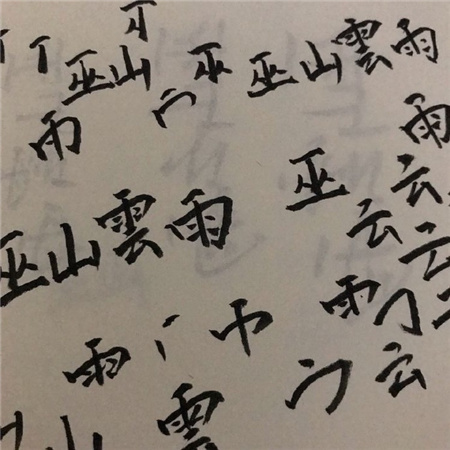 巫山 巫 巫山雲雨
雨 雨
巫 云
巫山雲雨 云 云
雨 巾 雨
云
山雲